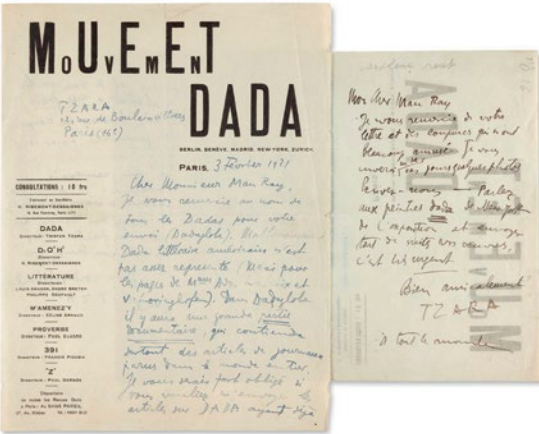 MoUvEmEnT
DADA
BERLIN, GENÈVE, MADRID, NEW-YORK, ZURICH
TZARA
12, rue de Boulainvilliers
Paris (16e)
PARIS, 3 Février 1921
CONSULTATIONS : 10 frs
G. RIBEMONT-DESSAIGNES
DADA
Directeur : TRISTAN TZARA
DdO4H2
Directeur :
G. RIBEMONT-DESSAIGNES
LITTÉRATURE
Directeurs :
LOUIS ARAGON, ANDRÉ BRETON
PHILIPPE SOUPAULT
M'AMENEZ'Y
Directeur : CÉLINE ARNAULD
PROVERBE
Directeur : PAUL ELUARD
391
Directeur : FRANCIS PICABIA
"Z"
Directeur : PAUL DERMÉE
à Paris : AU SANS PAREIL
Cher Monsieur Man Ray,
je vous remercie au nom de
tous les Dadas pour votre
envoi (Dadaglobe).
Dada littéraire américain n'est
pas assez représenté
Dans Dadaglobe
il y aura une grande partie
documentaire, qui contiendra
surtout des articles de journaux
parus dans le monde entier.
Je vous serais fort obligé si
vous vouliez m'envoyer les
articles sur DADA ayant déjà
Mon cher Man Ray
Je vous remercie de votre
lettre et des coupures qui m'ont
beaucoup amusé. Je vous
enverrai ces jours quelques photos
Ecrivez-nous. Parlez
aux peintres dada de New York
de l'exposition et envoyez
tout de suite vos oeuvres,
c'est très urgent
Bien amicalement
TZARA
à tout le monde